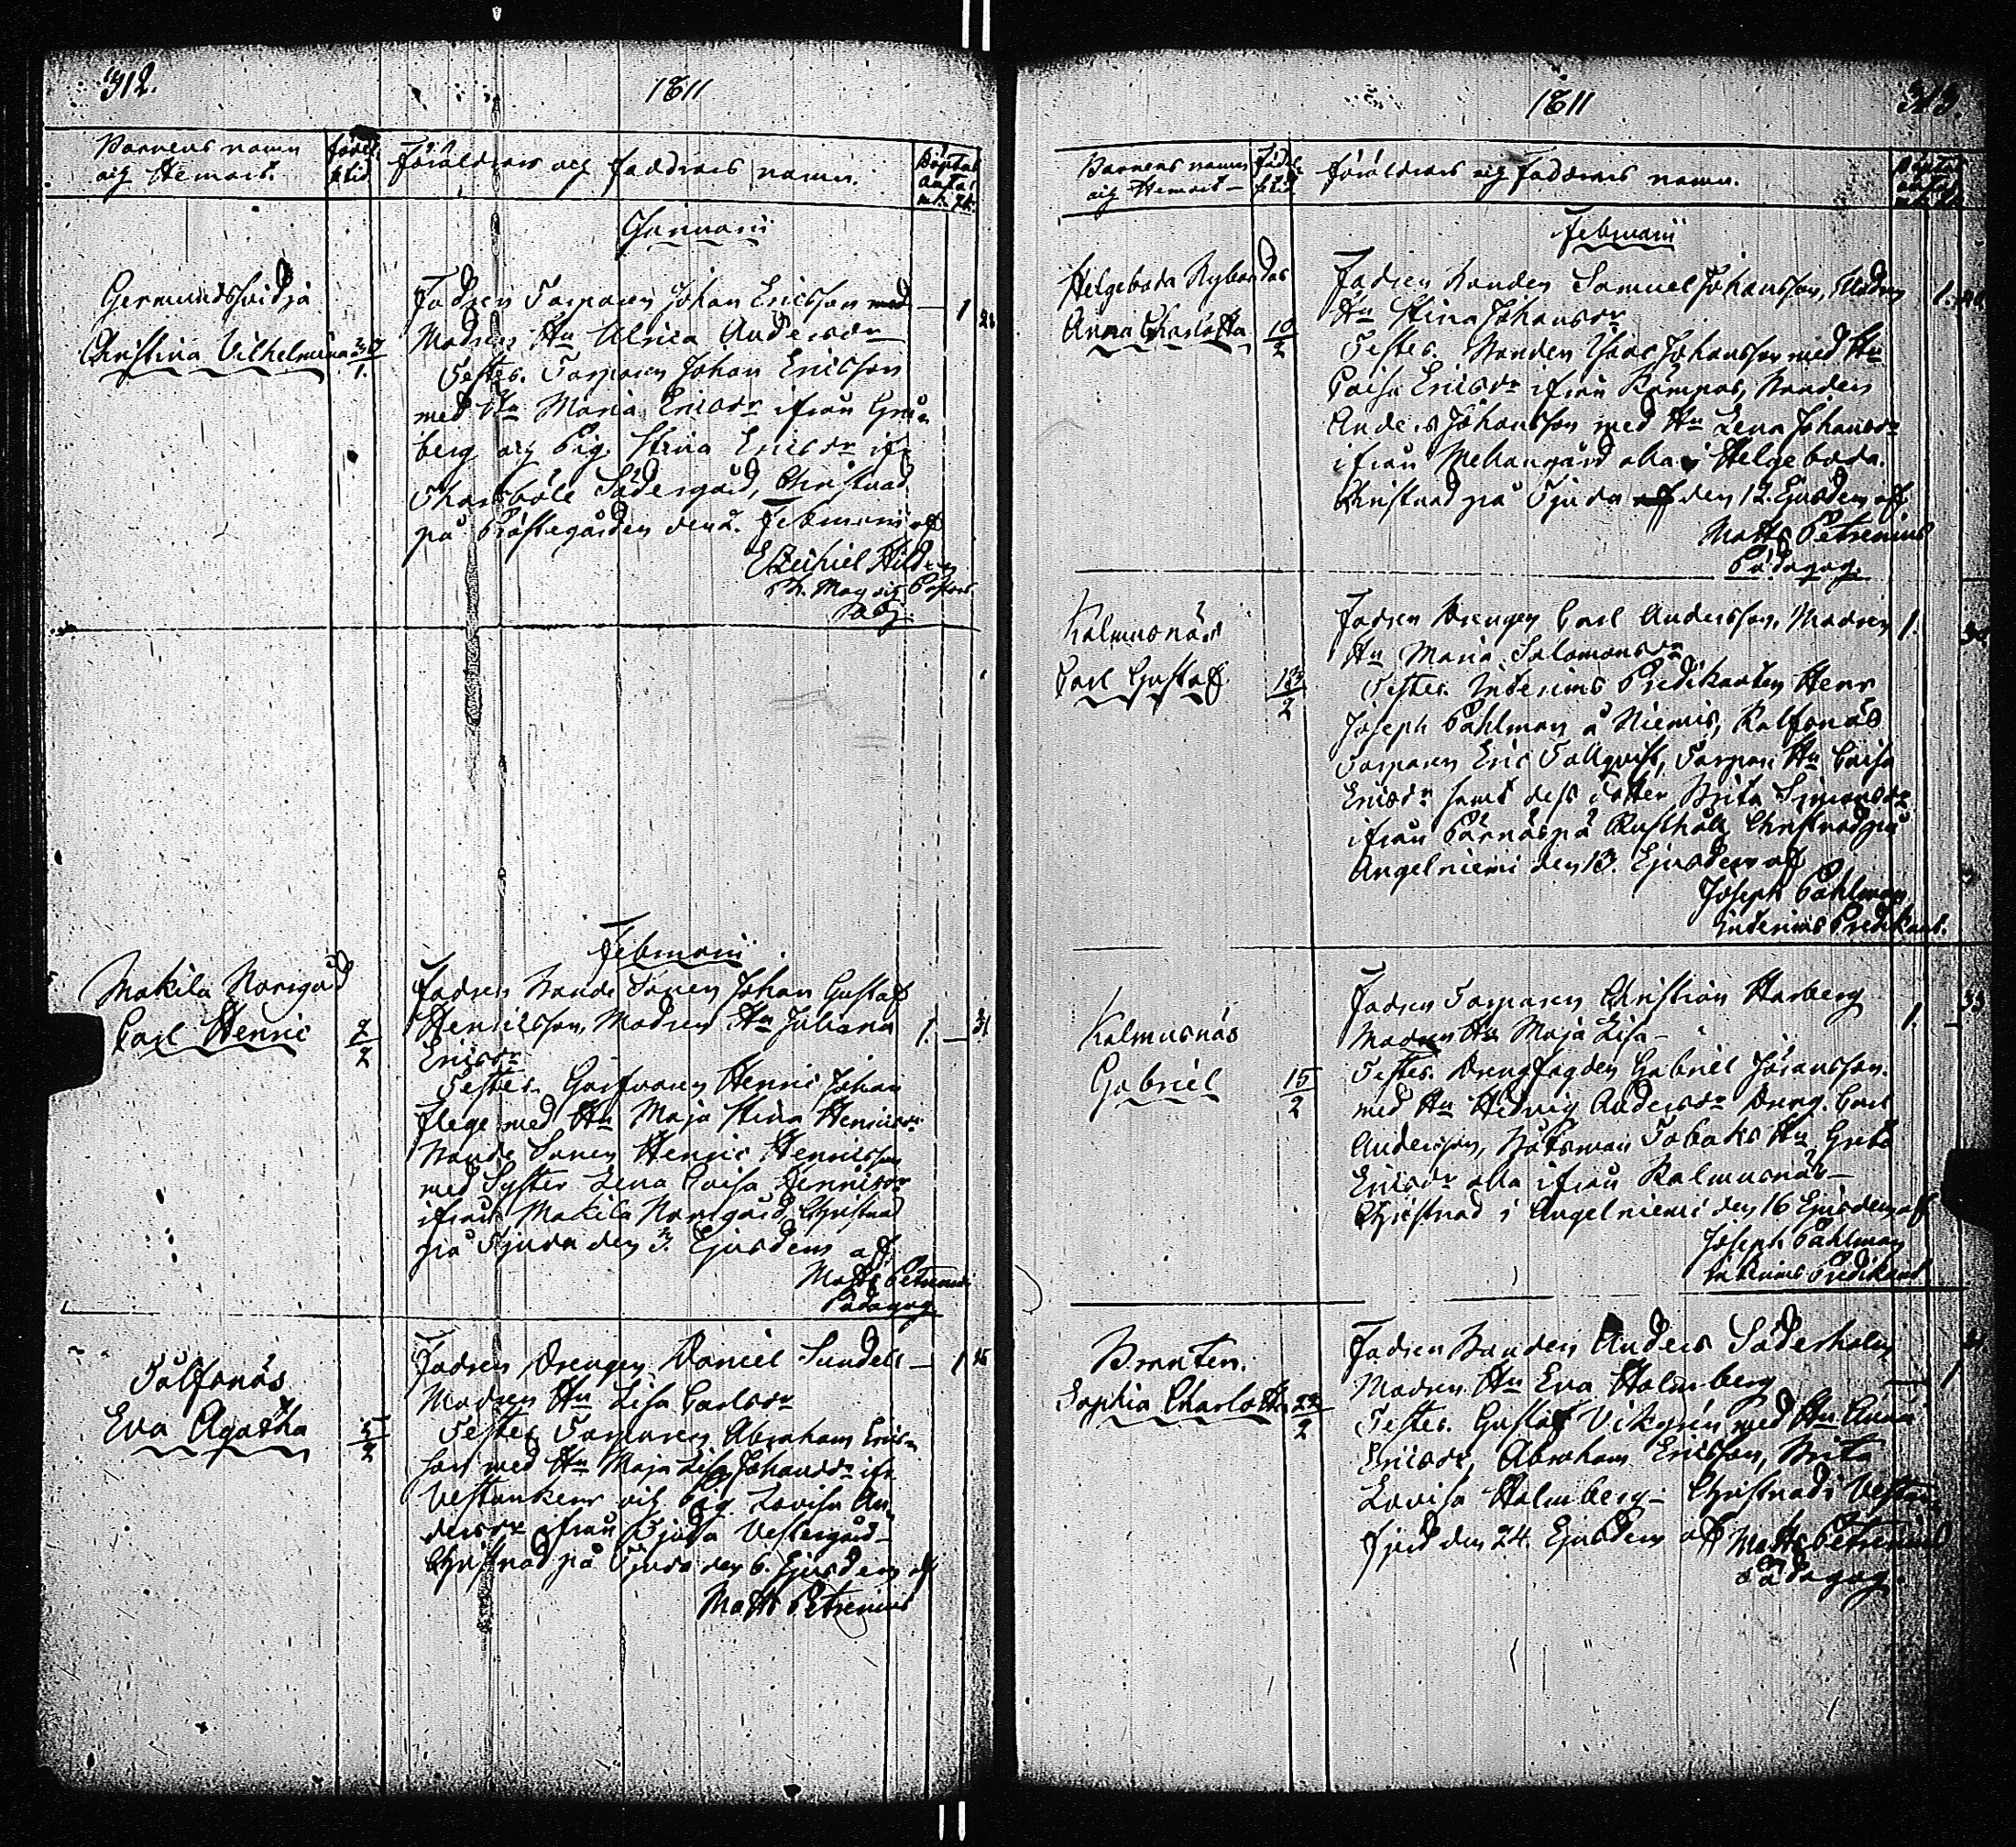 312.
1811
Barnens namn
och Hemvist.
födel.
setid
Föräldrars och faddrars namn.
Januarii
Germundssvidja
Christina Vilhelmina
30
1.
Fadren Torparen Johan Ericsson med 1
Modren Hu Ulrica Andersdr
Testes. Torparen Johan Ericsson
med Hu Maria Ericsdr ifrån Grin
berg och Pig. Stina Ericsdr ifr
Skarsböle Södergård, Christnad
på Prästegården den 2. Februarii af
Ezechiel Hild
Ph. Mag och Pastors
adj.
Februarii
Makila Norrgård
Carl Henric
2
2
Fadren Bonde Sonen Johan Gustaf
Henricsson, Modren Hu Juliana 1. — 31
Ericsdr
Testes. Henric Johan
Flege med Hu Maja Stina Henricsdr
Bonde Sonen Henric Henricsson
med Syster Lena Caisa Henricsdr
ifrån Makila Norrgård, Christnad
på Tjuda den 3. Ejusdem af
Matts Petrenius
Pädagog
Tålfsnäs
Eva Agatha
5
2
Fadren Drengen Daniel Sundell — 1
Modren Hu Lisa Carlsdr
Testes Torparen Abraham Erics
son med Hu Maja Lisa Johansdr ifr
Vestankerr och Pig. Lovisa An
dersdr ifrån Tjuda Vestergård
Christnad på Tjuda den 6. Ejusdem af
Matts Petrenius
1811
313.
Barnens namn
och Hemvist —
Födel
setid
Föräldrars och Faddrars namn.
Februarii
Helgeboda Nybondas
Anna Charlotta
10
2
Fadren Bonden Samuel Johansson, Modren 1.
Hu Stina Johansdr
Testes. Bonden Isaac Johansson med Hu
Caisa Ericsdr ifrån Römpas, Bonden
Anders Johansson med Hu Lena Johansdr
ifrån Mellangård alla i Helgeboda.
Christnad på Tjuda den 12. Ejusdem af
Matts Petrenius
Pädagog.
Kalmusnäs
Carl Gustaf
13
2
Fadren Drengen Carl Andersson, Modren 1.
Hu Maria Salomonsdr
Testes. Interims Predikanten Herr
Joseph Påhlman å Niemis, Kalfsnäs
Torparen Eric Tallqvist, Torpare Hu Caisa
Ericsdr samt dess dotter Brita Simonsdr
ifrån Pärnäspä Rusthåll, Christnad på
Angelniemi den 13. Ejusdem af
Joseph Påhlman
Interims Predikant.
Kalmusnäs
Gabriel
15
2
Fadren Torparen Christian Harberg
Modren Hu Maja Lisa — 1. —
Testes. Drengfogden Gabriel Johansson
med Hu Hedvig Andersdr Dreng. Carl
Andersson, Båtsman Tobaks Hu Greta
Ericsdr alla ifrån Kalmusnäs —
Christnad i Angelniemi den 16 Ejusdem af
Joseph Påhlman
Interims Predikant
Branten.
Sophia Charlotta
22
2
Fadren Bonden Anders Söderholm
Modren Hu Eva Holmberg — 1
Testes. Gustaf Vikgrén med Hu Anna
Ericsdr, Abraham Ericsson, Brita
Lovisa Holmberg — Christnad i Vestan
fjerd den 24. Ejusdem af Matts Petrenius
Pädagog.